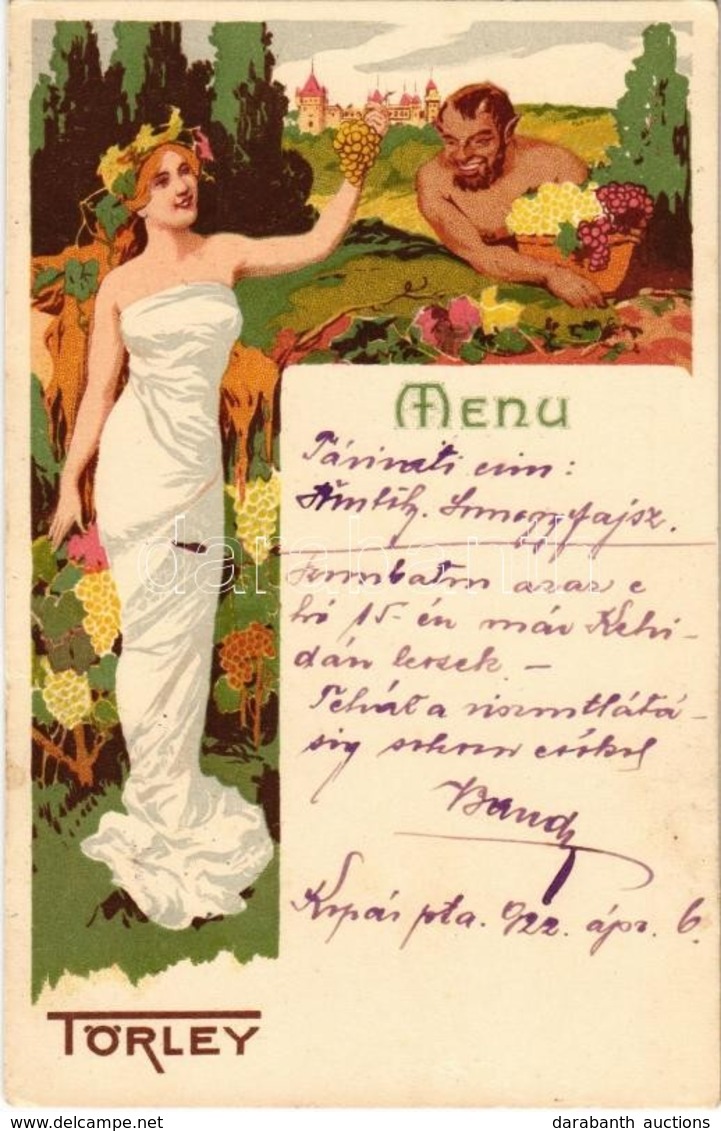 Menu
Távirati cim:
Somogyfajsz.
Szombaton azaz e
hó 15-én már Kehi-
dán leszek —
Tehát a viszontlátá-
sig sokszor csókol
Bandy
pta. 922. ápr. 6.
TÖRLEY
darabanth
© darabanth auctions